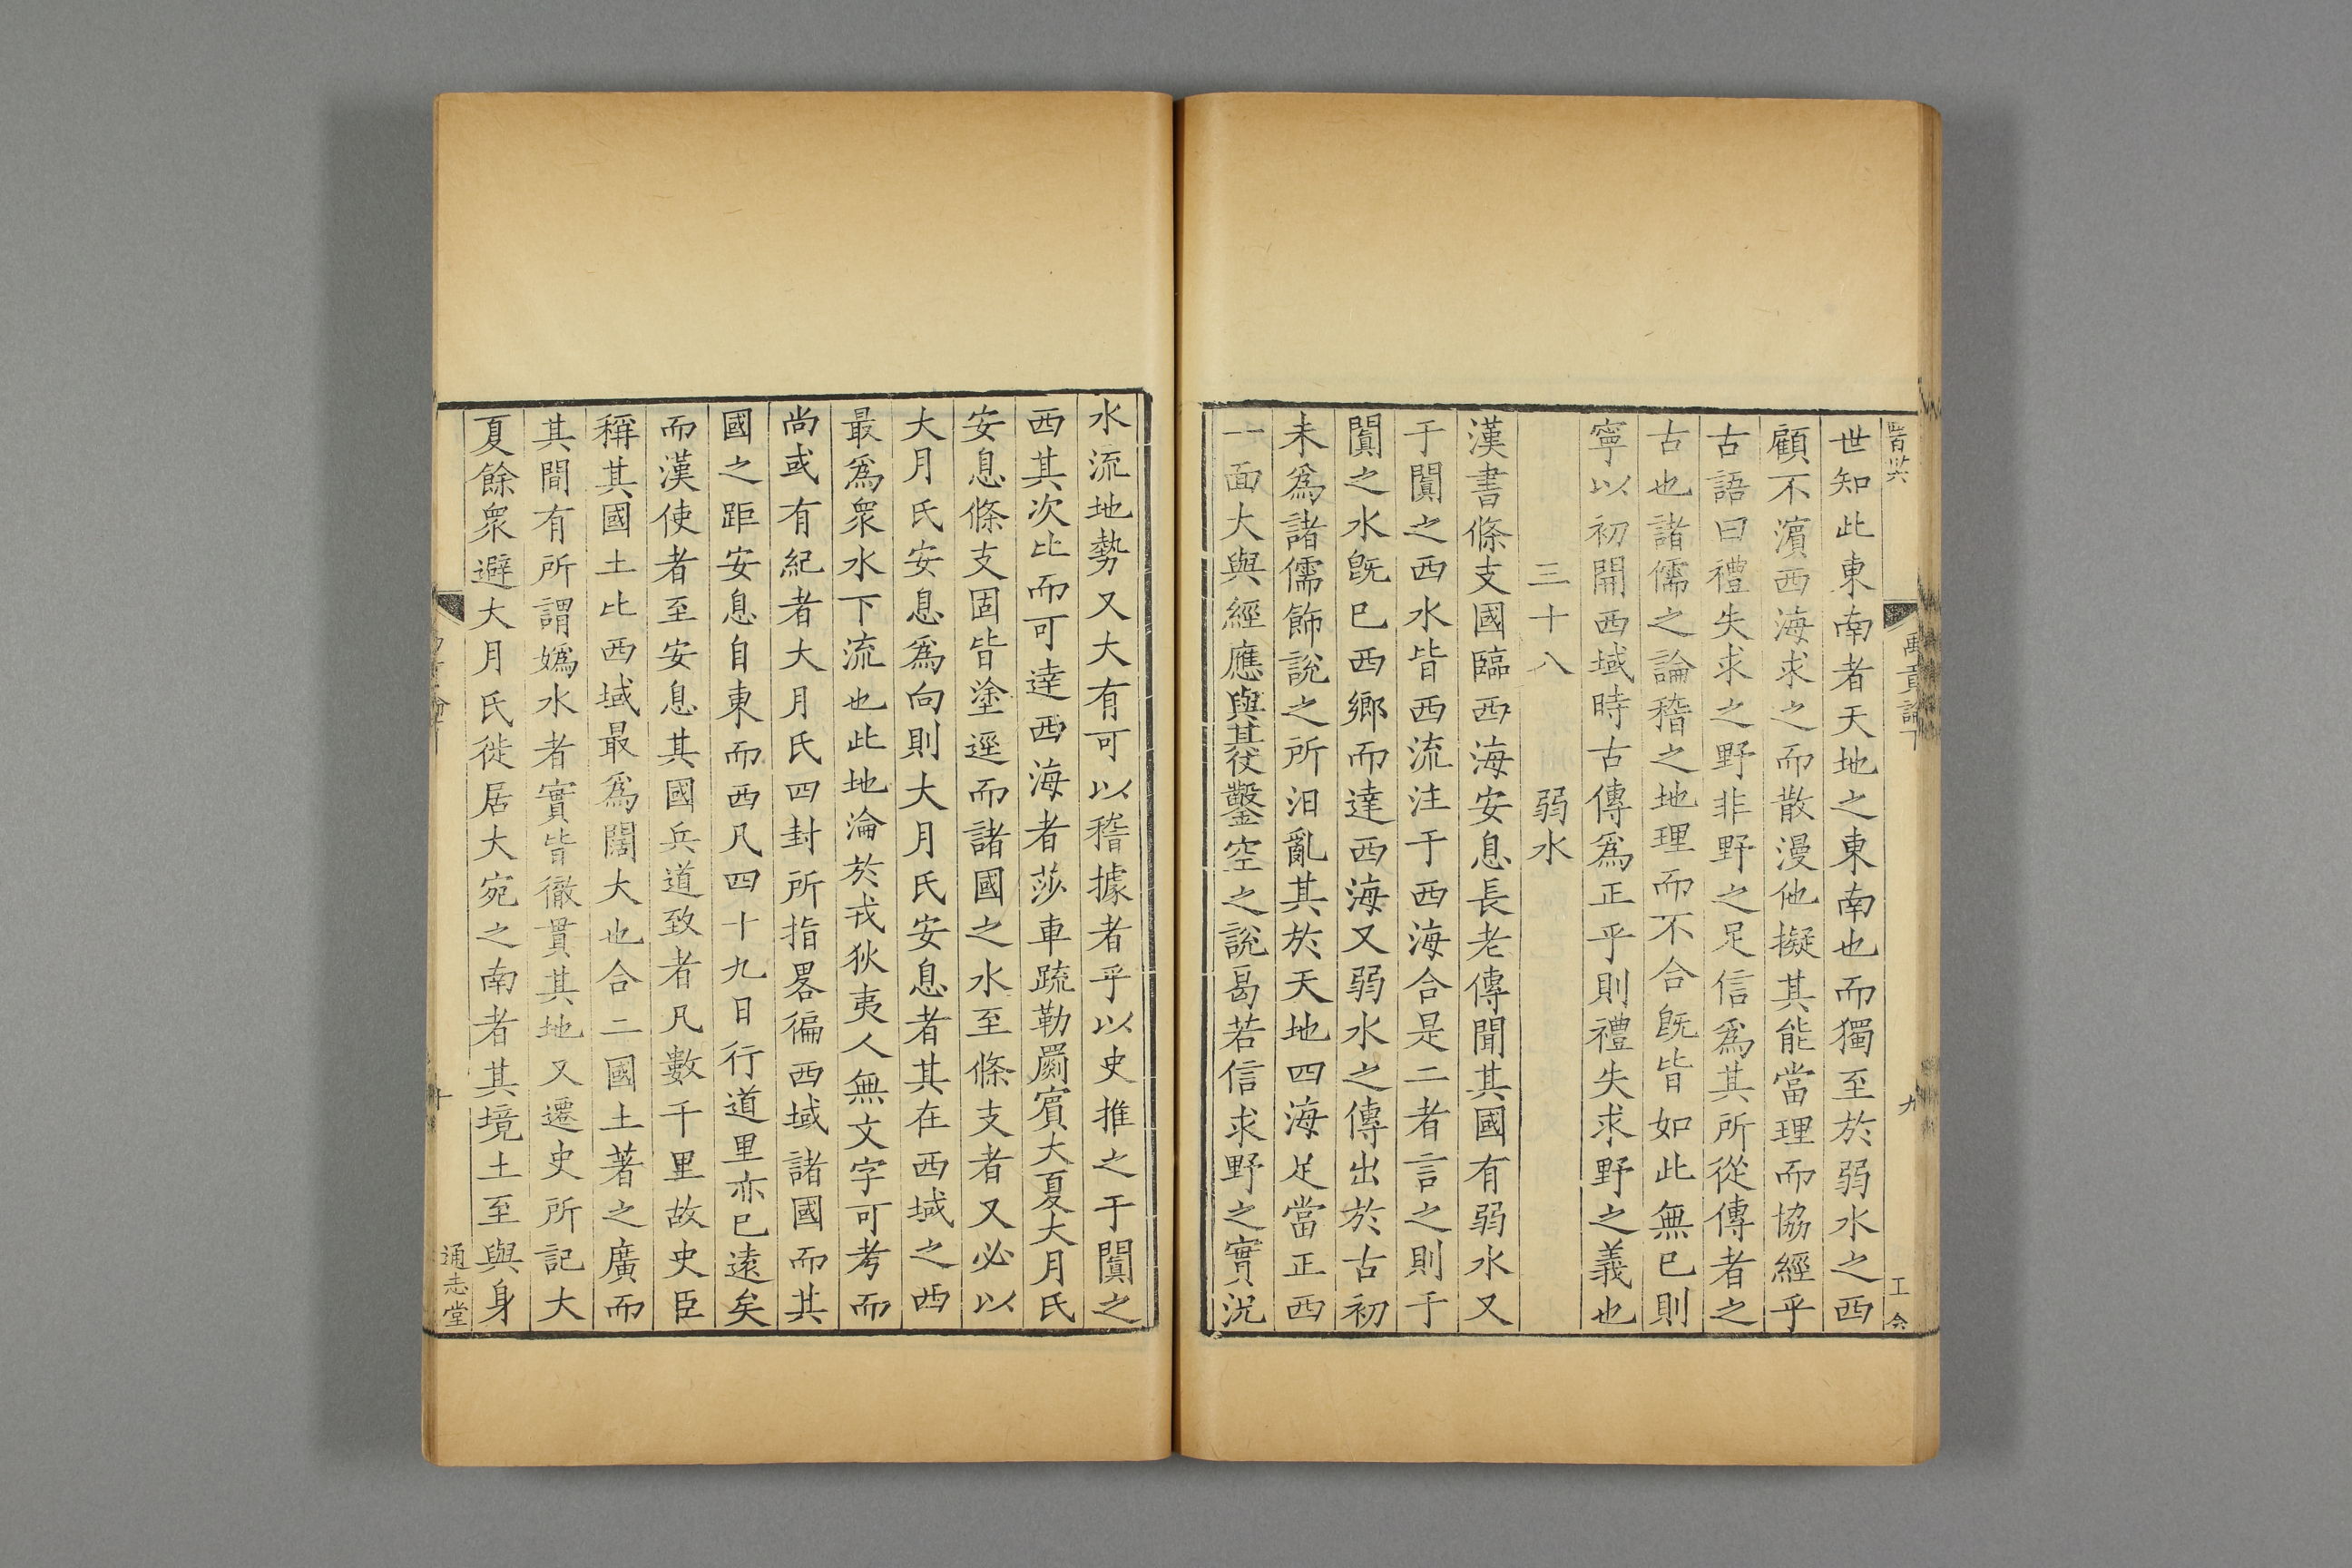 世知此東南者天地之東南也而獨至於弱水之西
顧不濵西海求之而散漫他擬其能當理而協經乎
古語曰禮失求之野非野之足信爲其所從傳者之
古也諸儒之論稽之地理而不合旣皆如此無已則
寧以初開西域時古傳爲正乎則禮失求野之義也
三十八 弱水
漢書條支國臨西海安息長老傳聞其國有弱水又
于闐之西水皆西流注于西海合是二者言之則于
闐之水旣已西鄉而達西海又弱水之傳出於古初
未爲諸儒飾說之所汨亂其於天地四海足當正西
一面大與經應與其從鑿空之說曷若信求野之實況
水流地勢又大有可以稽據者乎以史推之于闐之
西其次比而可達西海者莎車疏勒罽賔大夏大月氏
安息條支固皆塗逕而諸國之水至條支者又必以
大月氏安息爲向則大月氏安息者其在西域之西
最爲衆水下流也此地淪於戎狄夷人無文字可考而
尚或有紀者大月氏四封所指畧徧西域諸國而其
國之距安息自東而西凡四十九日行道里亦已遠矣
而漢使者至安息其國兵道致者凡數千里故史臣
稱其國土比西域最爲闊大也合二國土著之廣而
其間有所謂嬀水者實皆徹貫其地又遷史所記大
夏餘衆避大月氏徙居大宛之南者其境土至與身
通志堂